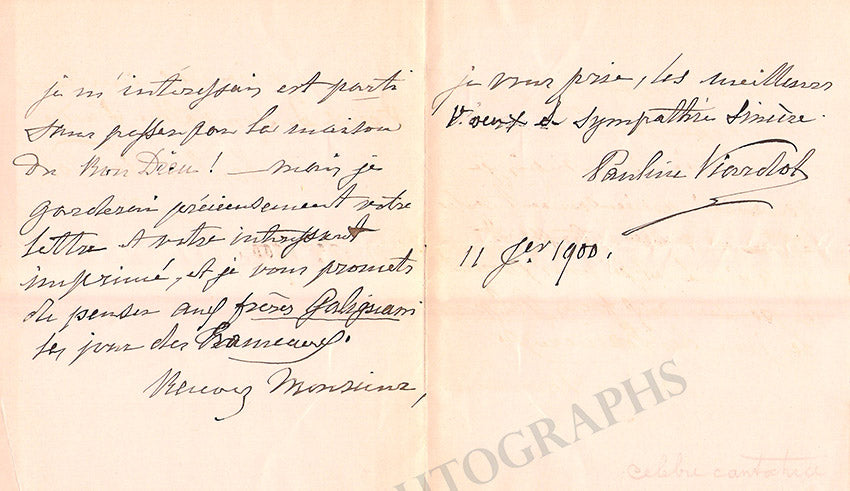 je m'intéressais est parti
sans passer par la maison
du Bon Dieu ! — mais je
garderai précieusement votre
lettre et votre intéressant
imprimé, et je vous promets
de penser aux frères Galignani
les jour des Rameaux.
Recevez Monsieur,
je vous prie, les meilleurs
vœux de sympathie sincère.
Pauline Viardot
11 Jer 1900.
AUTOGRAPHS
celebre cantatrice